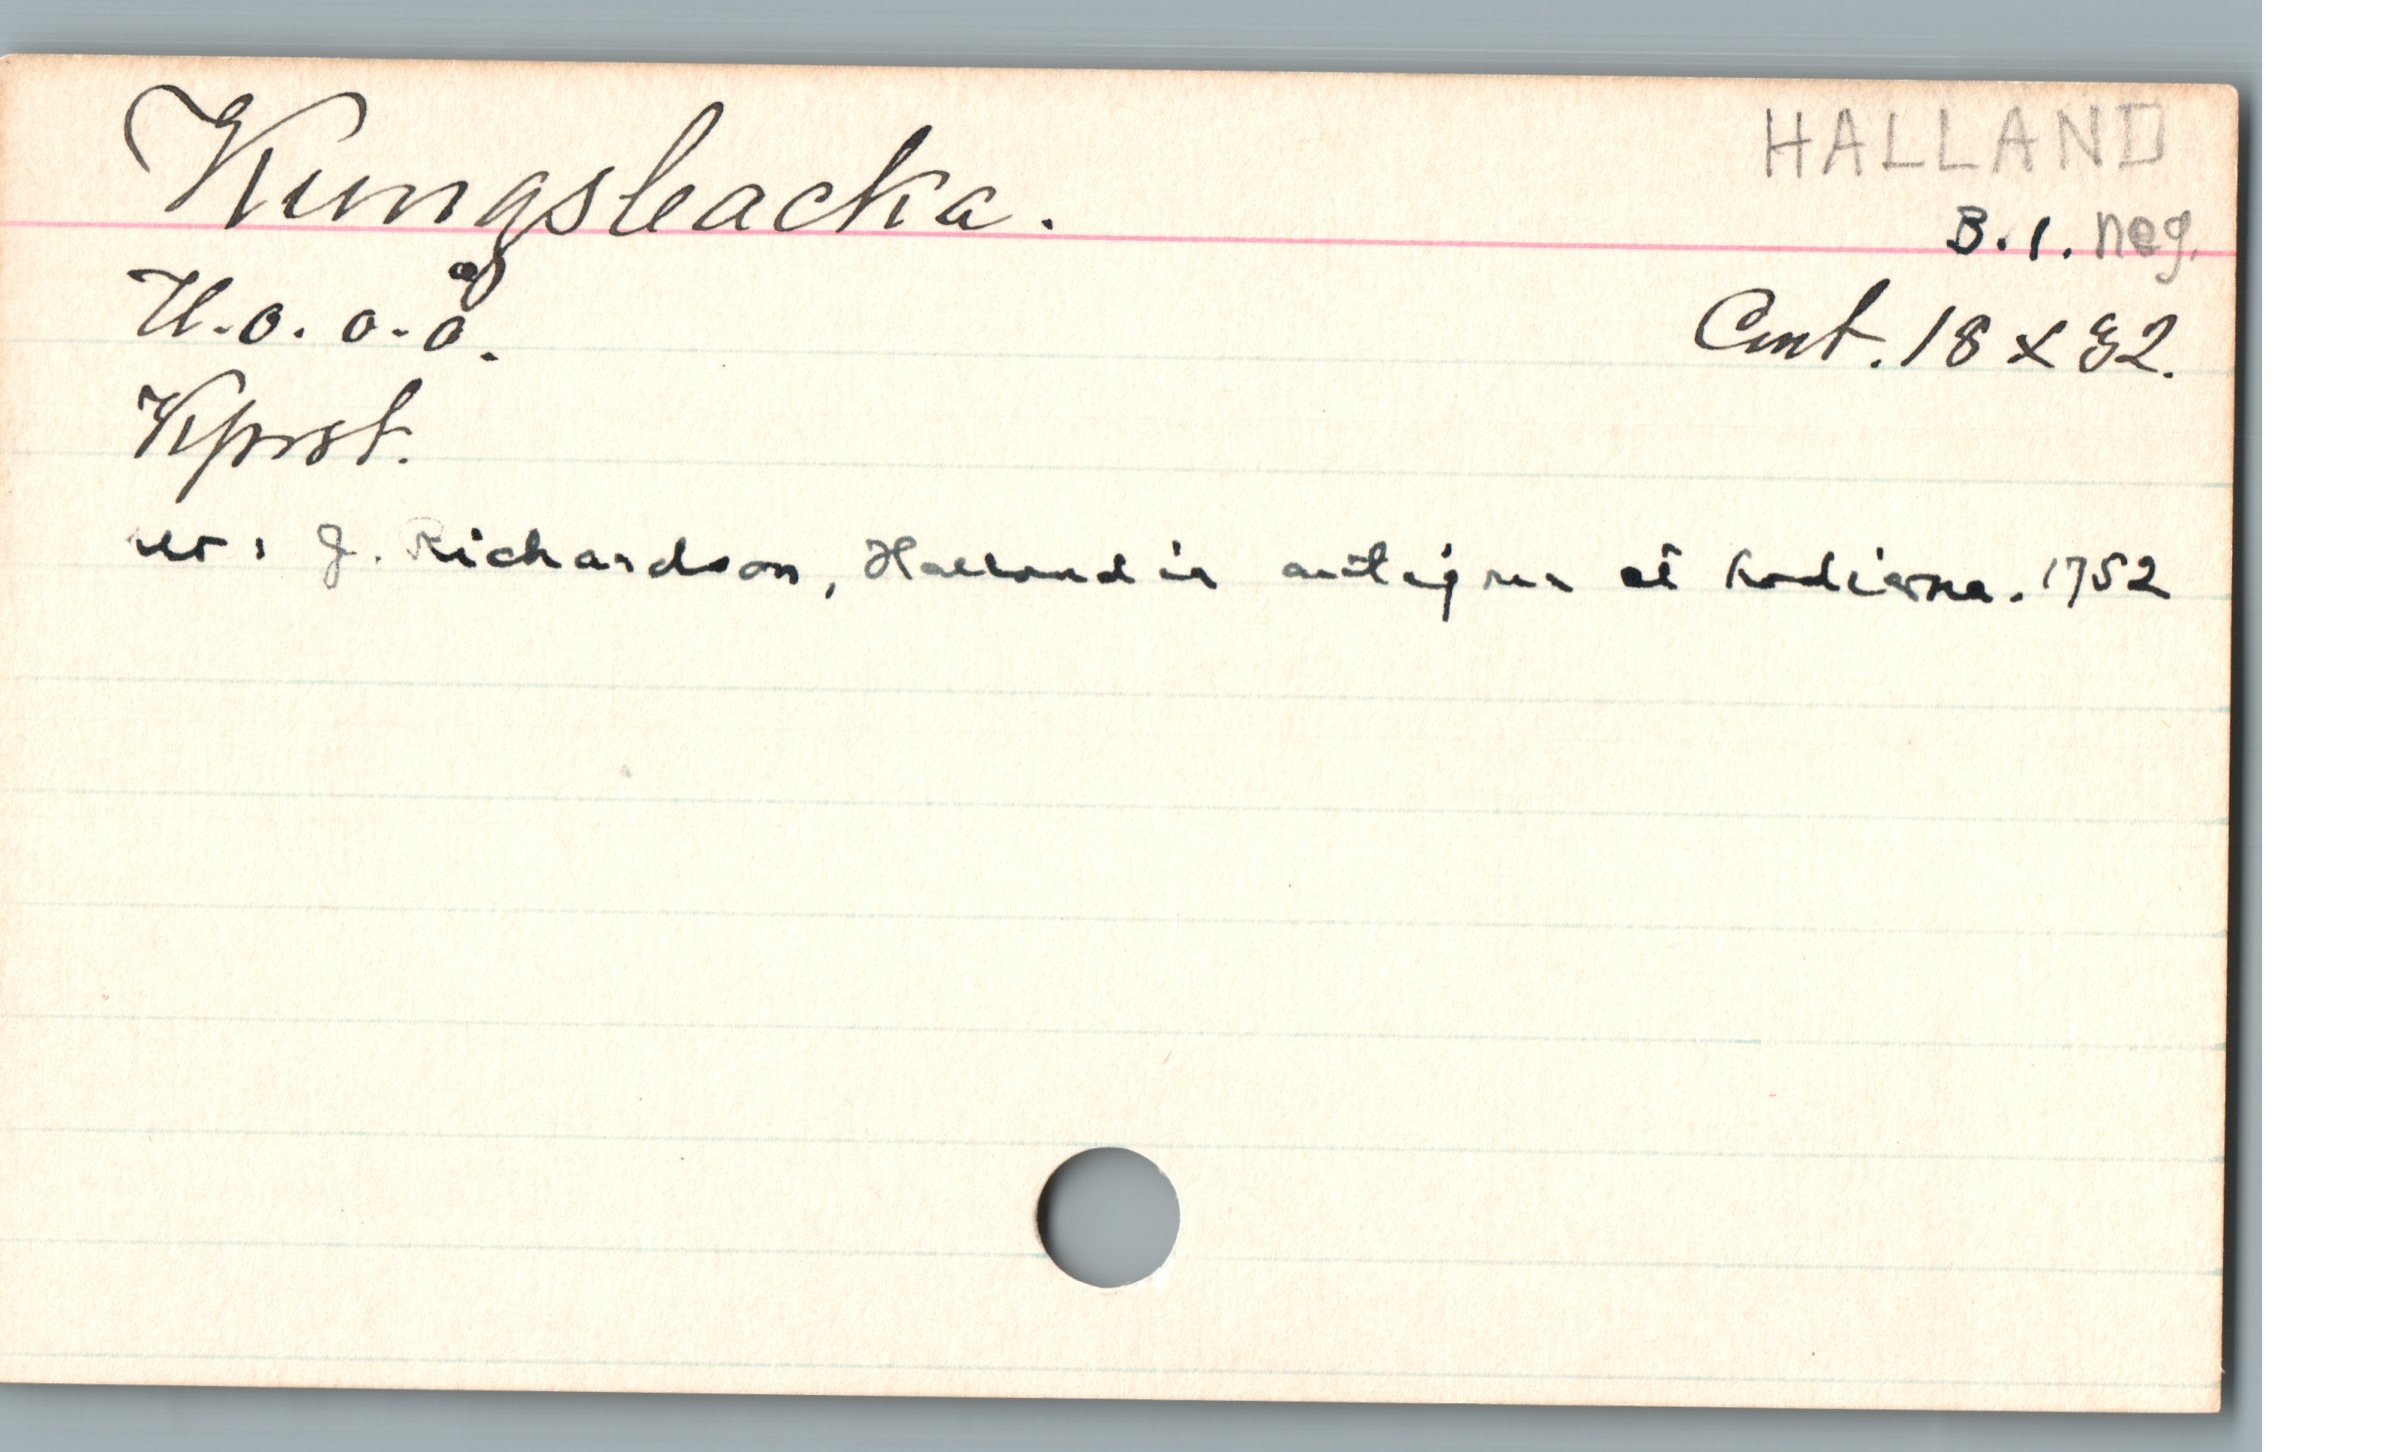 Kungsbacka.
HALLAND
B. 1. neg.
U. o. o. å.
Cmt. 18 x 32.
Kprst.
ur: J. Richardson, Hallandia antiqua et hodierna. 1752